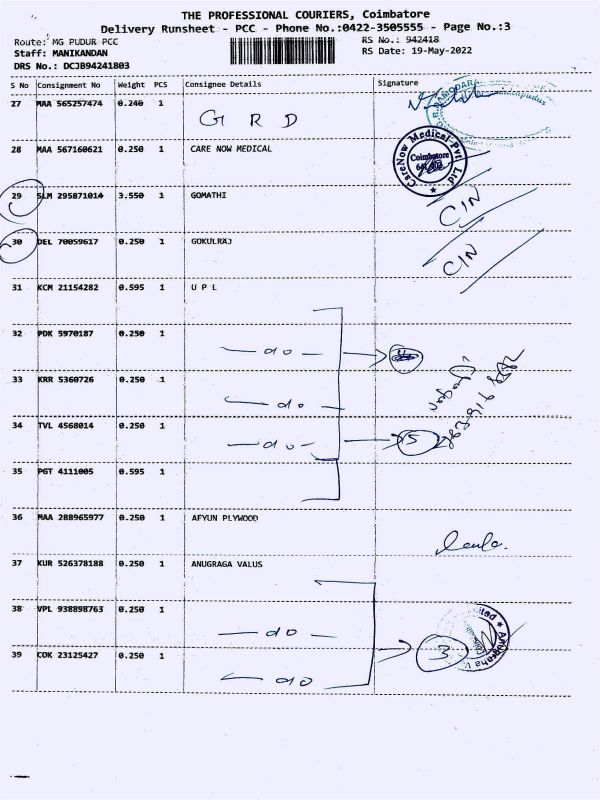 THE PROFESSIONAL COURIERS, Coimbatore
Delivery Runsheet - PCC - Phone No.:0422-3505555 - Page No.:3
Route: MG PUDUR PCC
RS No.: 942418
Staff: MANIKANDAN
RS Date: 19-May-2022
DRS No.: DCJB94241803
S No Consignment No Weight PCS Consignee Details Signature
27 MAA 565257474 0.240 1 G R D
28 MAA 567160621 0.250 1 CARE NOW MEDICAL
CareNow Medical Pvt Ltd
Coimbatore
29 SLM 295871014 3.550 1 GOMATHI CIN
30 DEL 70059617 0.250 1 GOKULRAJ CIN
31 KCM 21154282 0.595 1 U P L
32 PDK 5970187 0.250 1 do
33 KRR 5360726 0.250 1 do
34 TVL 4568014 0.250 1 do 5
35 PGT 4111005 0.595 1
36 MAA 288965977 0.250 1 AFYUN PLYWOOD
37 KUR 526378188 0.250 1 ANUGRAGA VALUS
38 VPL 938898763 0.250 1 do
39 COK 23125427 0.250 1 do 3